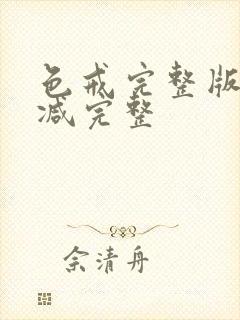 色戒完整版
减完整
余清舟